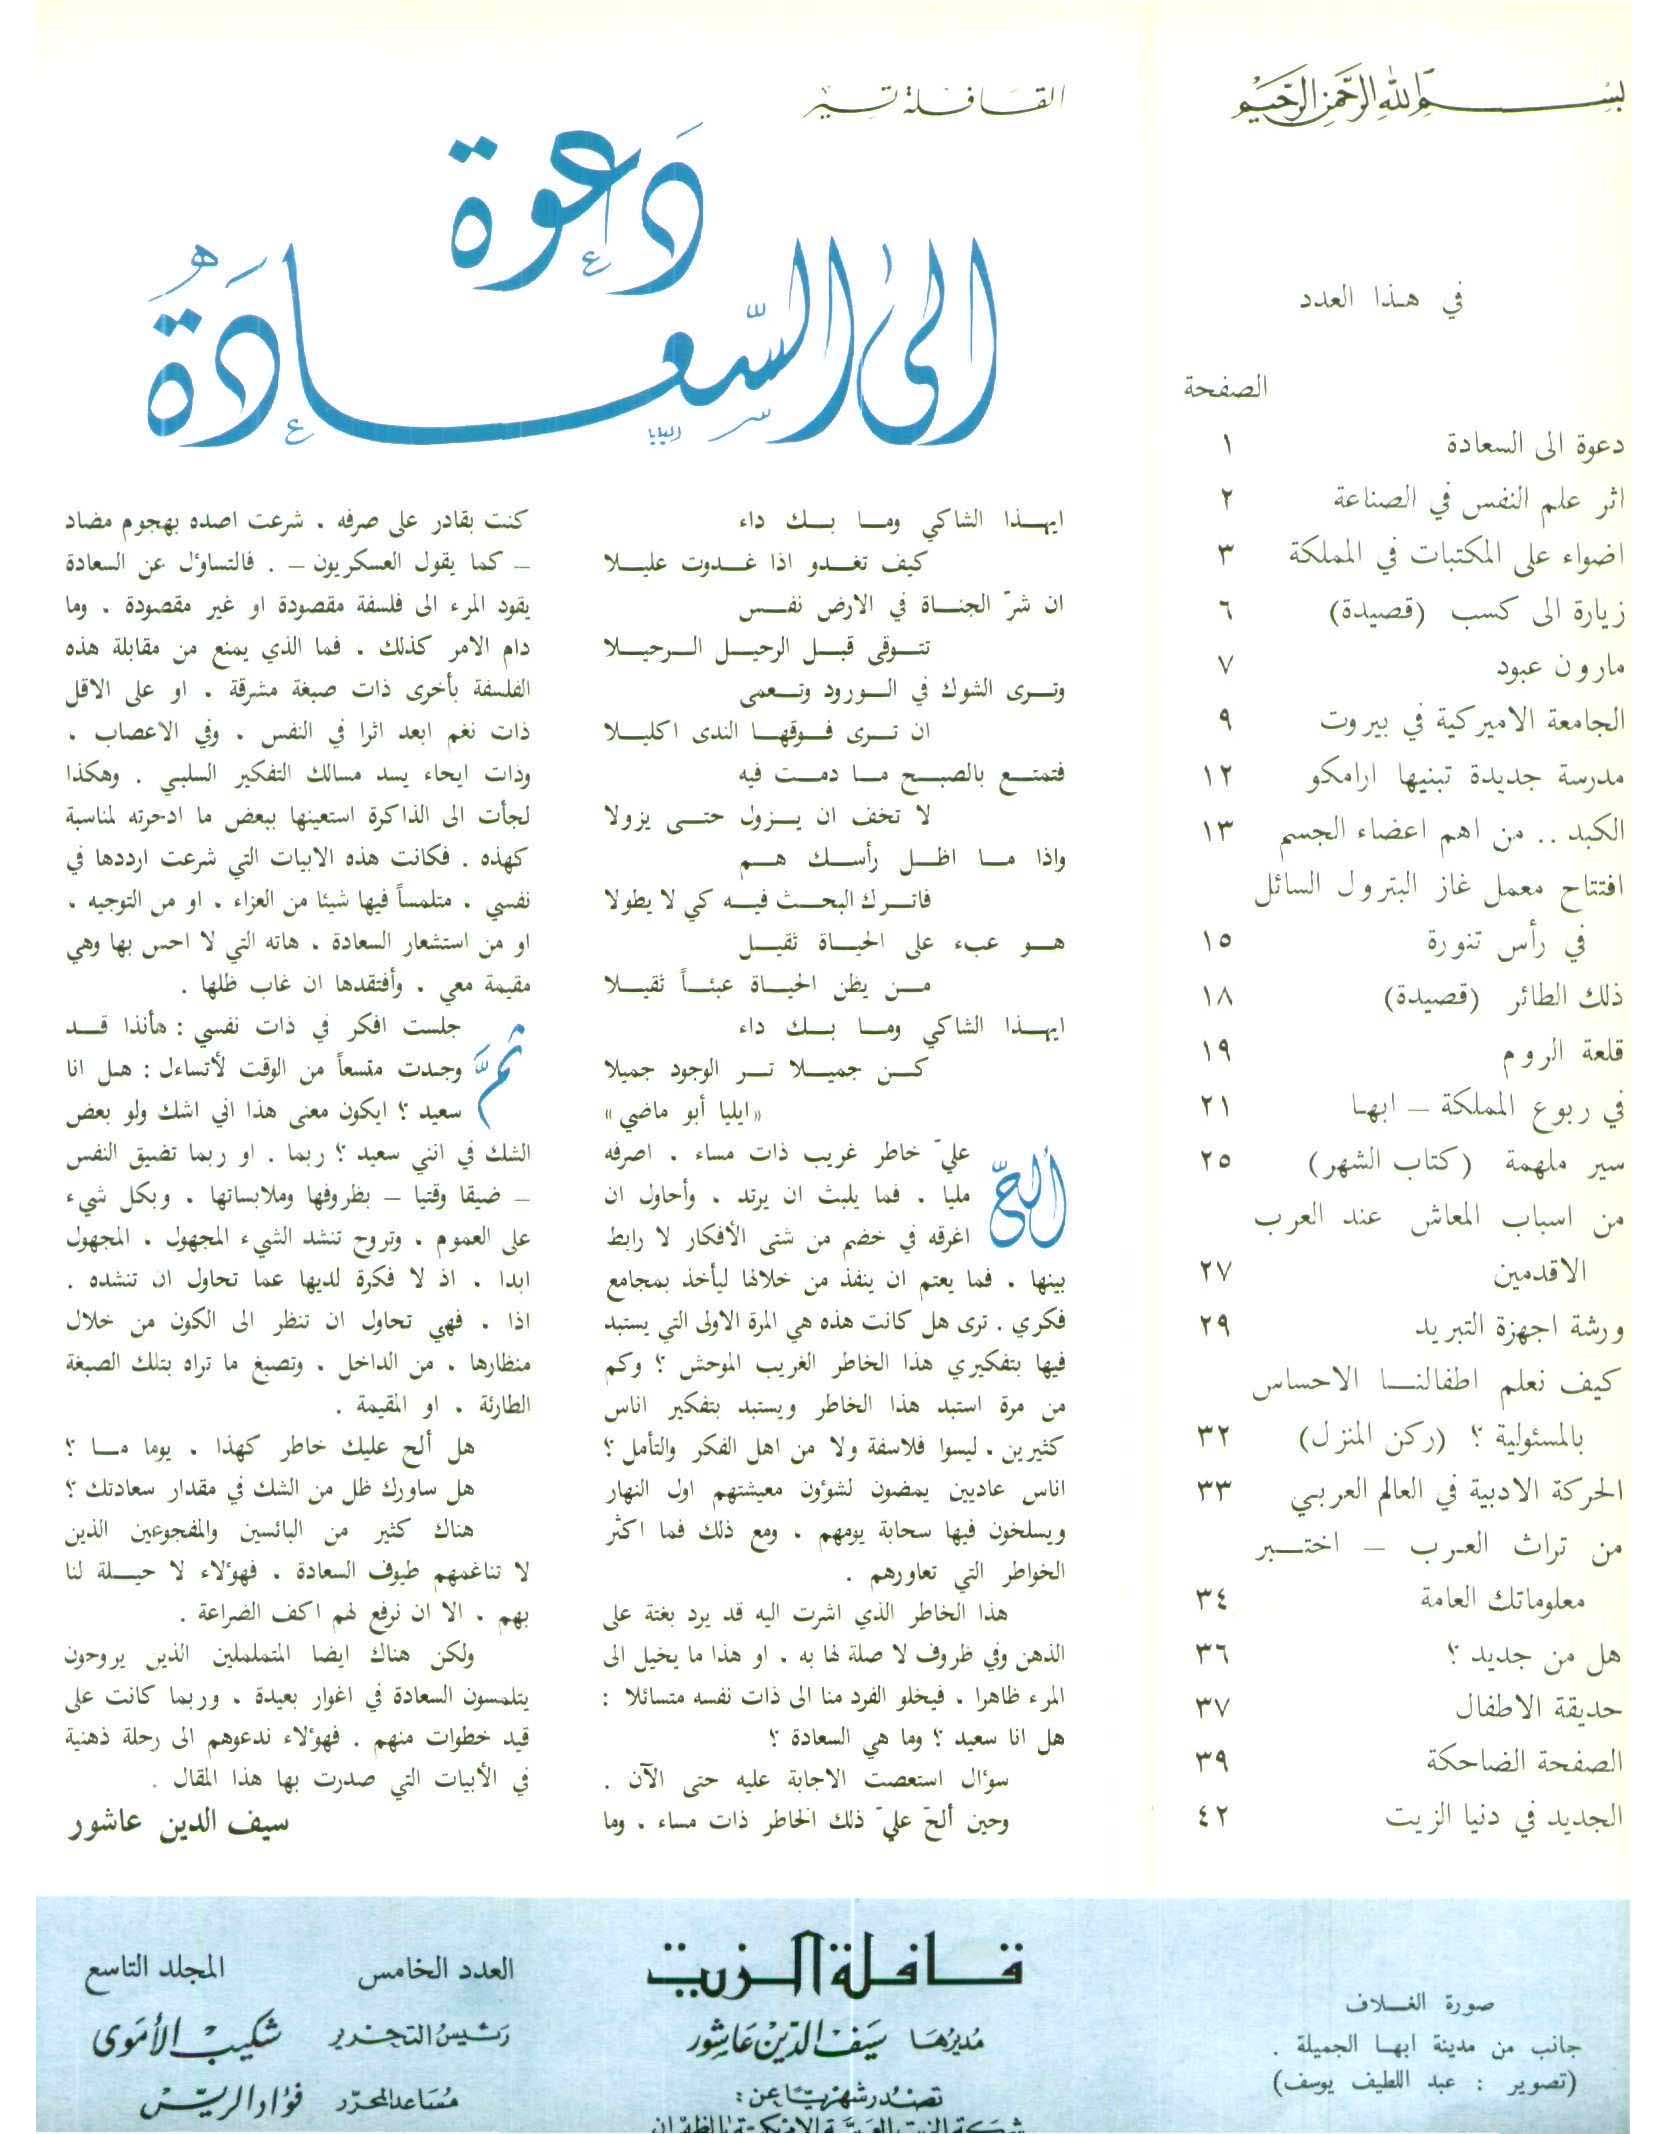 بسم الله الرحمن الرحيم
في هذا العدد
الصفحة
دعوة الى السعادة ١
اثر علم النفس في الصناعة ٢
اضواء على المكتبات في المملكة ٣
زيارة الى كسب (قصيدة) ٦
مارون عبود ٧
الجامعة الاميركية في بيروت ٩
مدرسة جديدة تبنيها ارامكو ١٢
الكبد .. من اهم اعضاء الجسم ١٣
افتتاح معمل غاز البترول السائل
في رأس تنورة ١٥
ذلك الطائر (قصيدة) ١٨
قلعة الروم ١٩
في ربوع المملكة – ابها ٢١
سير ملهمة (كتاب الشهر) ٢٥
من اسباب المعاش عند العرب
الاقدمين ٢٧
ورشة اجهزة التبريد ٢٩
كيف نعلم اطفالنا الاحساس
بالمسئولية ؟ (ركن المنزل) ٣٢
الحركة الادبية في العالم العربي ٣٣
من تراث العرب – اختبر
معلوماتك العامة ٣٤
هل من جديد ؟ ٣٦
حديقة الاطفال ٣٧
الصفحة الضاحكة ٣٩
الجديد في دنيا الزيت ٤٢
القافلة تسير
دعوة
الى السعادة
ايهذا الشاكي وما بك داء
كيف تغدو اذا غدوت عليلا
ان شرّ الجناة في الارض نفس
تتوقى قبل الرحيل الرحيلا
وترى الشوك في الورود وتعمى
ان ترى فوقها الندى اكليلا
فتمتع بالصبح ما دمت فيه
لا تخف ان يزول حتى يزولا
واذا ما اظل رأسك هم
فاترك البحث فيه كي لا يطولا
هو عبء على الحياة ثقيل
من يظن الحياة عبئاً ثقيلا
ايهذا الشاكي وما بك داء
كن جميلا تر الوجود جميلا
«ايليا أبو ماضي»
ألحّ عليّ خاطر غريب ذات مساء . اصرفه
مليا . فما يلبث ان يرتد . وأحاول ان
اغرقه في خضم من شتى الأفكار لا رابط
بينها . فما يعتم ان ينفذ من خلالها ليأخذ بمجامع
فكري . ترى هل كانت هذه هي المرة الاولى التي يستبد
فيها بتفكيري هذا الخاطر الغريب الموحش ؟ وكم
من مرة استبد هذا الخاطر ويستبد بتفكير اناس
كثيرين . ليسوا فلاسفة ولا من اهل الفكر والتأمل ؟
اناس عاديين يمضون لشؤون معيشتهم اول النهار
ويسلخون فيها سحابة يومهم . ومع ذلك فما اكثر
الخواطر التي تعاورهم .
هذا الخاطر الذي اشرت اليه قد يرد بغتة على
الذهن وفي ظروف لا صلة لها به . او هذا ما يخيل الى
المرء ظاهرا . فيخلو الفرد منا الى ذات نفسه متسائلا :
هل انا سعيد ؟ وما هي السعادة ؟
سؤال استعصت الاجابة عليه حتى الآن .
وحين ألحّ عليّ ذلك الخاطر ذات مساء . وما
كنت بقادر على صرفه . شرعت اصده بهجوم مضاد
– كما يقول العسكريون – . فالتساؤل عن السعادة
يقود المرء الى فلسفة مقصودة او غير مقصودة . وما
دام الامر كذلك . فما الذي يمنع من مقابلة هذه
الفلسفة بأخرى ذات صبغة مشرقة . او على الاقل
ذات نغم ابعد اثرا في النفس . وفي الاعصاب .
وذات ايحاء يسد مسالك التفكير السلبي . وهكذا
لجأت الى الذاكرة استعينها ببعض ما ادخرته لمناسبة
كهذه . فكانت هذه الابيات التي شرعت ارددها في
نفسي . متلمساً فيها شيئا من العزاء . او من التوجيه .
او من استشعار السعادة . هاته التي لا احس بها وهي
مقيمة معي . وأفتقدها ان غاب ظلها .
ثمّ جلست افكر في ذات نفسي : هأنذا قد
وجدت متسعاً من الوقت لأتساءل : هل انا
سعيد ؟ ايكون معنى هذا اني اشك ولو بعض
الشك في انني سعيد ؟ ربما . او ربما تضيق النفس
– ضيقا وقتيا – بظروفها وملابساتها . وبكل شيء
على العموم . وتروح تنشد الشيء المجهول . المجهول
ابدا . اذ لا فكرة لديها عما تحاول ان تنشده .
اذا . فهي تحاول ان تنظر الى الكون من خلال
منظارها . من الداخل . وتصبغ ما تراه بتلك الصبغة
الطارئة . او المقيمة .
هل ألح عليك خاطر كهذا . يوما ما ؟
هل ساورك ظل من الشك في مقدار سعادتك ؟
هناك كثير من البائسين والمفجوعين الذين
لا تناغمهم طيوف السعادة . فهؤلاء لا حيلة لنا
بهم . الا ان نرفع لهم اكف الضراعة .
ولكن هناك ايضا المتململين الذين يروحون
يتلمسون السعادة في اغوار بعيدة . وربما كانت على
قيد خطوات منهم . فهؤلاء ندعوهم الى رحلة ذهنية
في الأبيات التي صدرت بها هذا المقال .
سيف الدين عاشور
صورة الغلاف
جانب من مدينة ابها الجميلة .
(تصوير : عبد اللطيف يوسف)
قافلة الزيت
مديرها سيف الدين عاشور
تصدر شهريًا عن :
شركة الزيت العربية الامريكية بالظهران
العدد الخامس المجلد التاسع
رئيس التحرير شكيب الأموى
مساعد المحرر فؤاد الريس